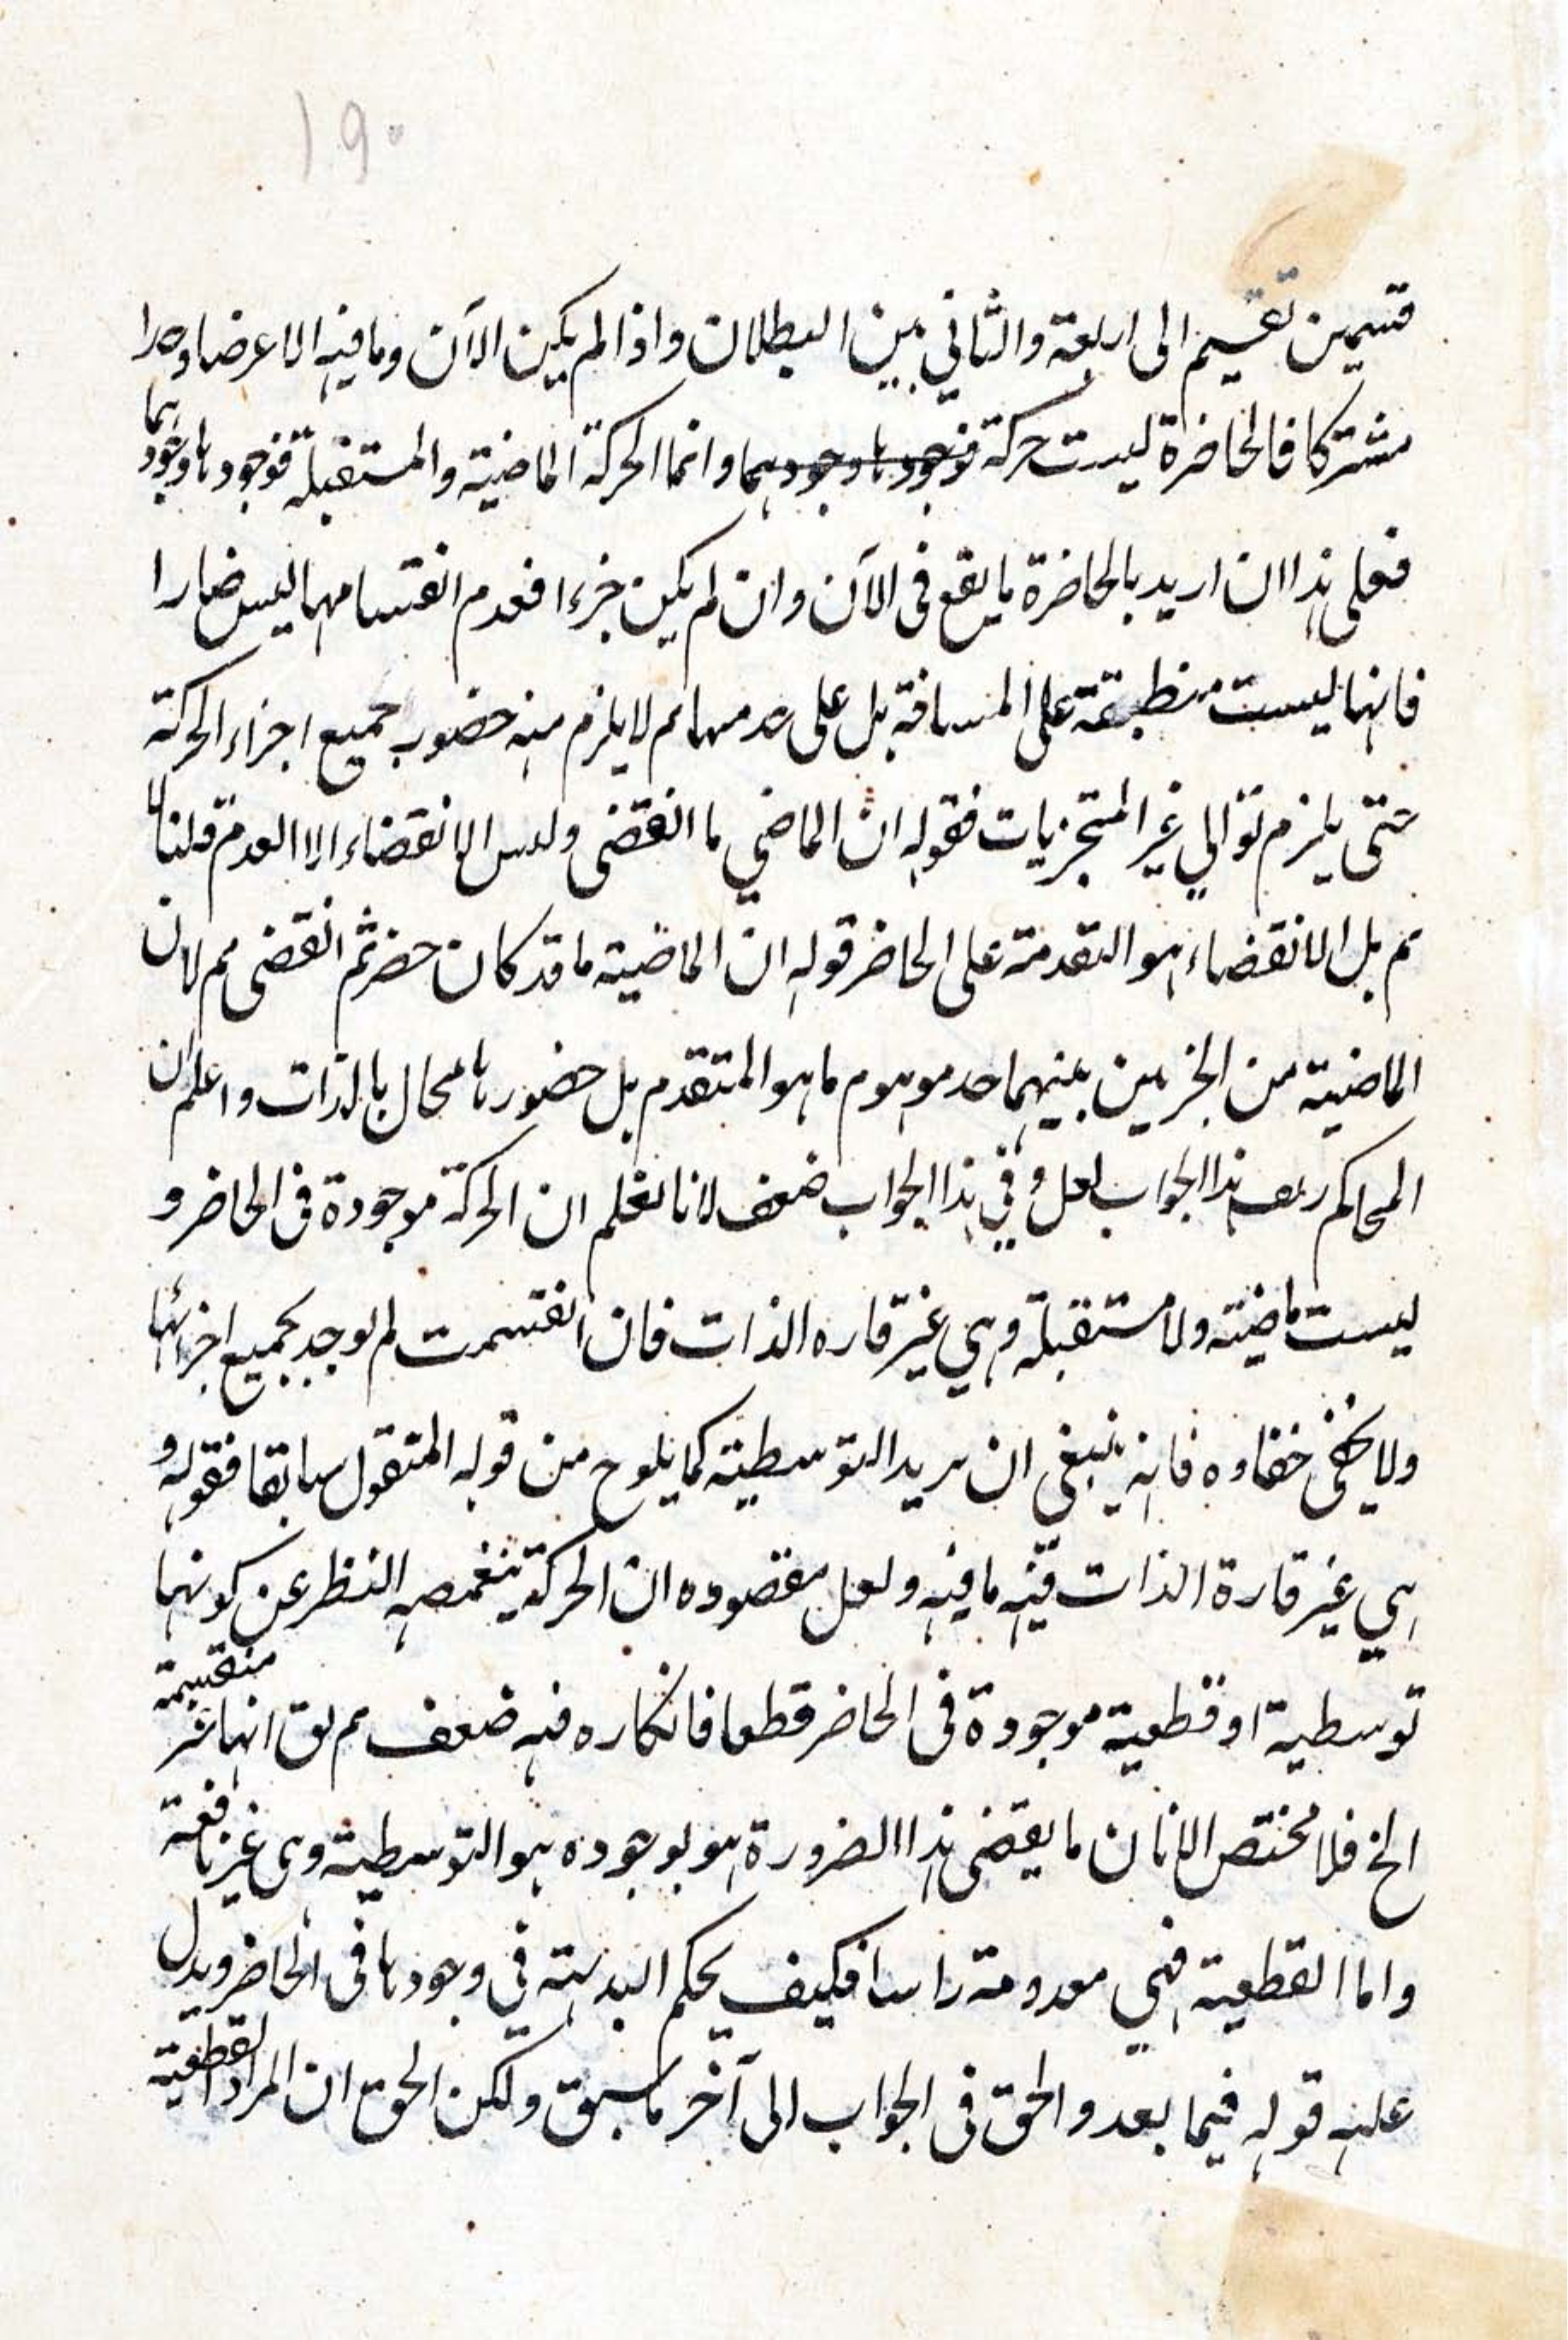 ١٩٠
قسمين تقسيم الى اربعة والثاني بين البطلان واذا لم يكن الآن وما فيه الا عرضا وحدا
مشتركا فالحاضرة ليست حركة فوجودها وجودهما وانما الحركة الماضية والمستقبلة فوجودها وجودهما
فعلى هذا ان اريد بالحاضرة ما يقع فى الآن وان لم يكن جزءا فعدم انقسامهما ليس ضارا
فانها ليست منطبقة على المسافة بل على حد منها ثم لا يلزم منه حضور جميع اجزاء الحركة
حتى يلزم توالي غير المتجزيات فقوله ان الماضي ما انقضى وليس الانقضاء الا العدم قلنا
مم بل الانقضاء هو التقدمة على الحاضر قوله ان الماضية ما قد كان حضر ثم انقضى مم لان
الماضية من الجزءين بينهما حد موهوم ما هو المتقدم بل حضورها محال بالذات واعلم ان
المحاكم هذا الجواب وفي هذا الجواب ضعف لانا نعلم ان الحركة موجودة فى الحاضر و
ليست ماضية ولا مستقبلة وهي غير قاره الذات فان انقسمت لم يوجد بجميع اجزائها
ولا يخفى خفاوه فانه ينبغى ان يريد التوسطية كما يلوح من قوله المنقول سابقا فقوله و
هي غير قارة الذات فيه ما فيه ولعل مقصوده ان الحركة النظر عن كونها
توسطية او قطعية موجودة فى الحاضر قطعا فانكاره فيه ضعف ثم انها غير منقسمة
الخ فلا مختص الا ان ما يقضى هذا الضرورة هو بوجوده هو التوسطية وهى غير نافعة
واما القطعية فهي معدومة راسا فكيف يحكم البديهة في وجودها فى الحاضر ويدل
عليه قوله فيما بعد والحق فى الجواب الى آخر ما سبق ولكن الحق ان المراد القطعية